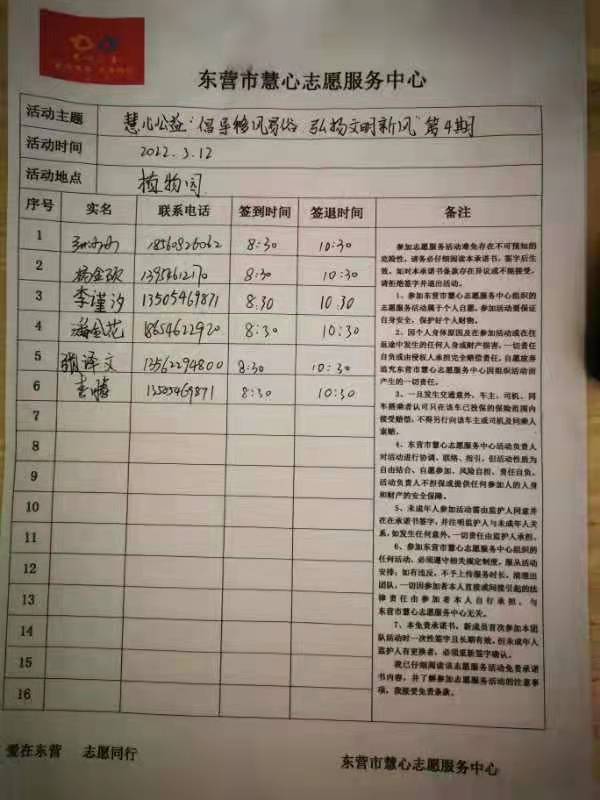 东营市慧心志愿服务中心
活动主题 慧心公益“倡导移风易俗 弘扬文明新风”第4期
活动时间 2022.3.12
活动地点 植物园
序号 实名 联系电话 签到时间 签退时间 备注
1 18560826062 8:30 10:30
2 8:30 10:30
3 李谨汐 13505469871 8:30 10:30
4 潘金花 8654622920 8:30 10:30
5 张译文 13562294800 8:30 10:30
6 李腾 13505469871 8:30 10:30
7
8
9
10
11
12
13
14
15
16
参加志愿服务活动难免存在不可预知的
危险性，请务必仔细阅读本承诺书，签字后生
效。如对本承诺书条款存在异议或不能接受，
请拒绝签字并退出活动。
1、参加东营市慧心志愿服务中心组织的
志愿服务活动属于个人自愿。参加活动要保证
自身安全，保护好个人财物。
2、因个人身体原因及在参加活动或在往
返途中发生的任何人身或财产损害，一切责任
自负或由侵权人承担完全赔偿责任，自愿放弃
追究东营市慧心志愿服务中心因组织活动而
产生的一切责任。
3、一旦发生交通意外，车主、司机、同
车搭乘者认可只在该车已投保的保险范围内
接受赔偿，不得另行向该车主或司机及同乘人
索赔。
4、东营市慧心志愿服务中心活动负责人
对活动进行协调、联络、指引，但活动性质为
自由结合、自愿参加、风险自担、责任自负。
活动负责人不担保或提供任何参加人的人身
和财产的安全保障。
5、未成年人参加活动需由监护人同意并
在在承诺书签字，并注明监护人与未成年人关
系，如发生任何意外，一切责任由监护人承担。
6、参加东营市慧心志愿服务中心组织的
任何活动，必须遵守相关规定制度，服从活动
安排；如有违反，不予上传服务时长，清理出
团队，一切因参加者本人直接或间接引起的法
律责任由参加者本人自行承担，与
东营市慧心志愿服务中心无关。
7、本免责承诺书，新成员首次参加本团
队活动时一次性签字且长期有效。但未成年人
监护人有更换者，必须重新签字确认。
我已仔细阅读该志愿服务活动免责承诺
书内容，并了解参加志愿服务活动的注意事
项，我接受免责条款。
爱在东营 志愿同行 东营市慧心志愿服务中心